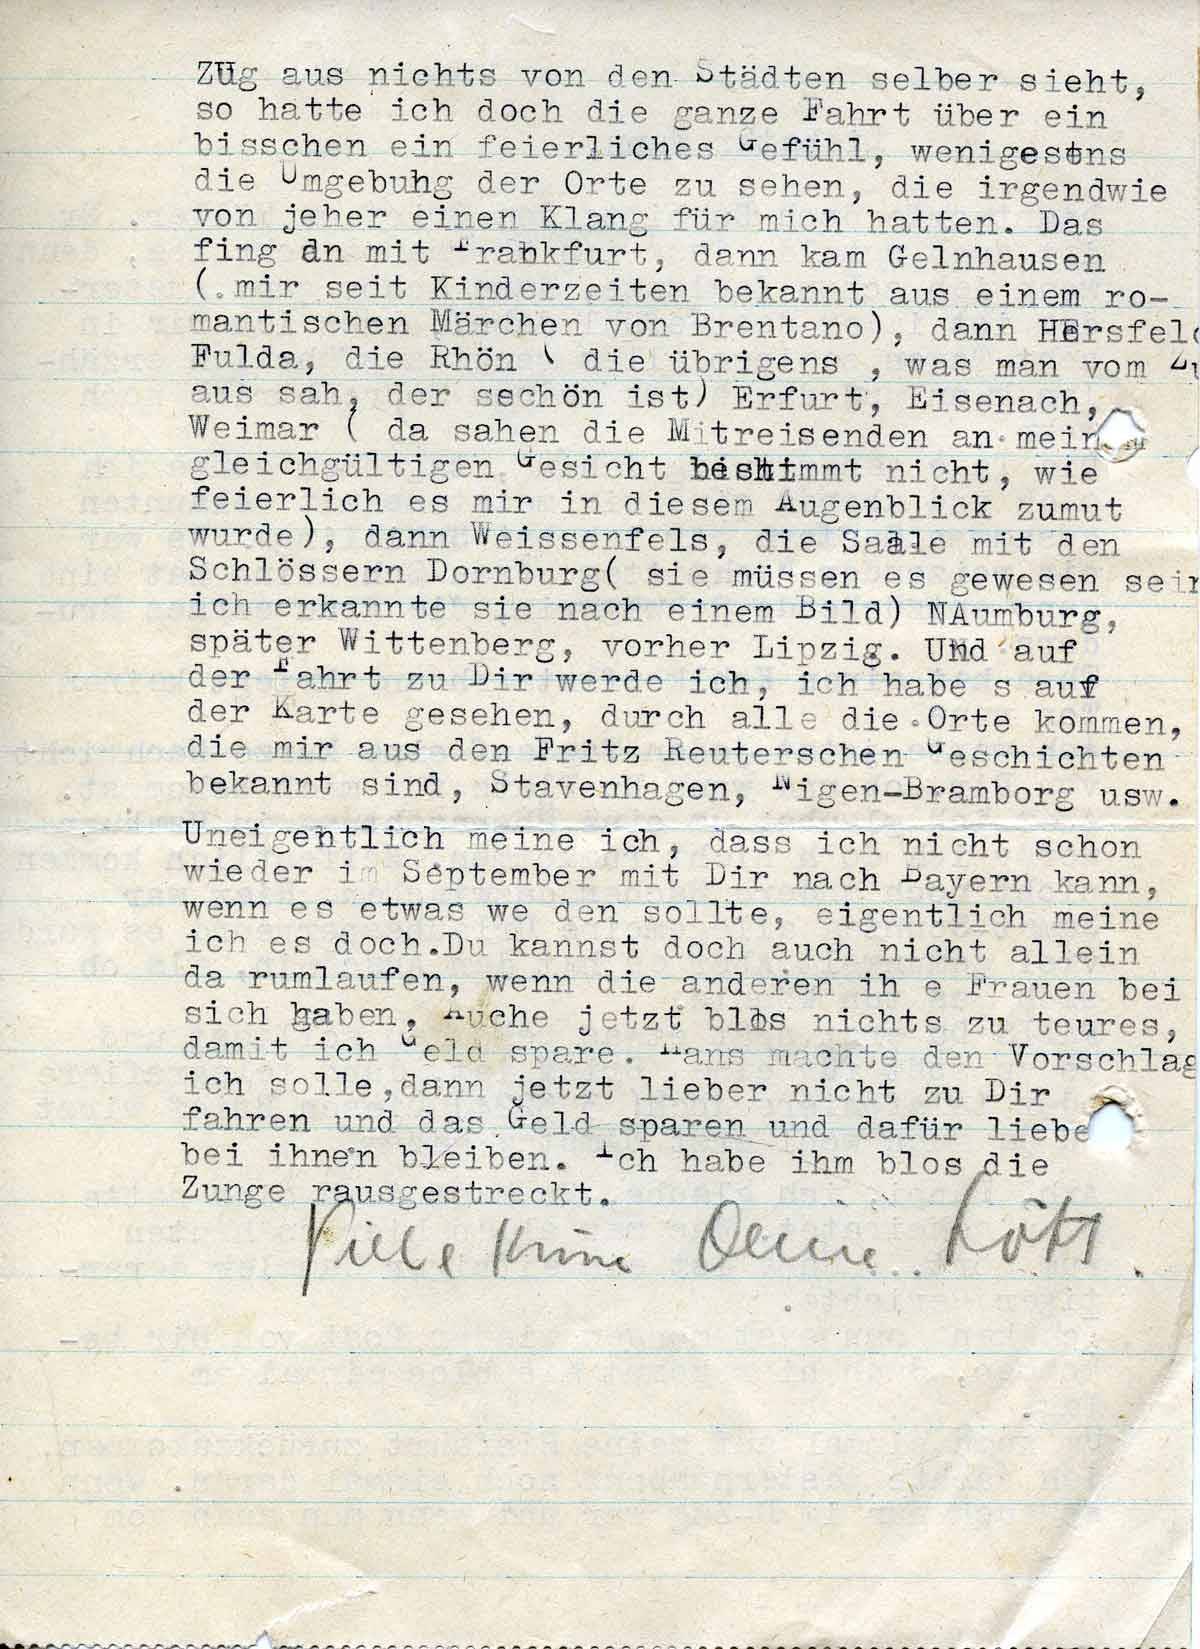 ZUg aus nichts von den Städten selber sieht,
so hatte ich doch die ganze Fahrt über ein
bisschen ein feierliches Gefühl, wenigestns
die Umgebuhg der Orte zu sehen, die irgendwie
von jeher einen Klang für mich hatten. Das
fing an mit Frankfurt, dann kam Gelnhausen
(.mir seit Kinderzeiten bekannt aus einem ro-
mantischen Märchen von Brentano), dann Hersfeld
Fulda, die Rhön ( die übrigens , was man vom Zu
aus sah, der sechön ist) Erfurt, Eisenach,
Weimar ( da sahen die Mitreisenden an mein
gleichgültigen Gesicht bestimmt nicht, wie
feierlich es mir in diesem Augenblick zumut
wurde), dann Weissenfels, die Saale mit den
Schlössern Dornburg( sie müssen es gewesen sein
ich erkannte sie nach einem Bild) NAumburg,
später Wittenberg, vorher Lipzig. Und auf
der Fahrt zu Dir werde ich, ich habe s auf
der Karte gesehen, durch alle die Orte kommen,
die mir aus den Fritz Reuterschen Geschichten
bekannt sind, Stavenhagen, Nigen-Bramborg usw.
Uneigentlich meine ich, dass ich nicht schon
wieder im September mit Dir nach Bayern kann,
wenn es etwas we den sollte, eigentlich meine
ich es doch.Du kannst doch auch nicht allein
da rumlaufen, wenn die anderen ih e Frauen bei
sich haben, Auche jetzt blos nichts zu teures,
damit ich Geld spare. Hans machte den Vorschlag
ich solle,dann jetzt lieber nicht zu Dir
fahren und das Geld sparen und dafür liebe
bei ihnen bleiben. Ich habe ihm blos die
Zunge rausgestreckt.
Viele Deine